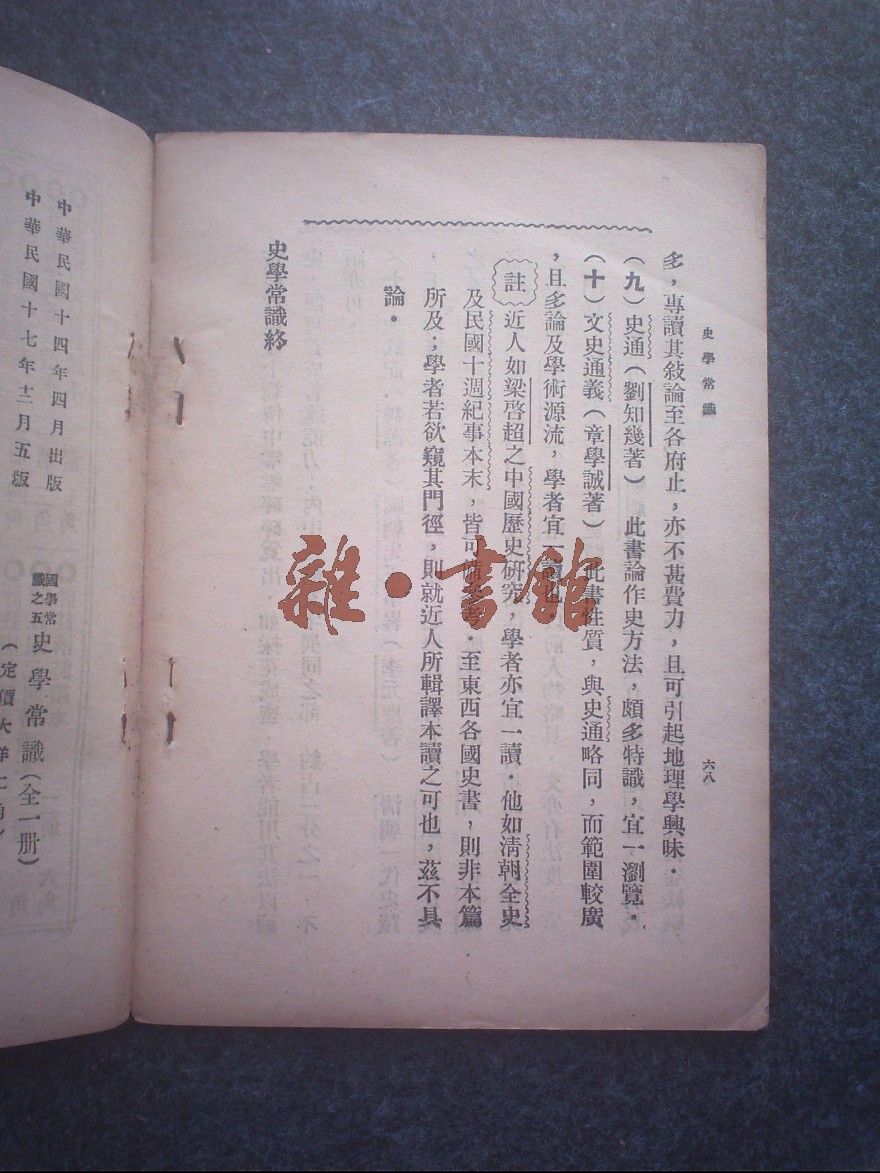 史學常識
六八
多，專讀其敍論至各府止，亦不甚費力，且可引起地理學興味．
（九）史通（劉知幾著）　此書論作史方法，頗多特識，宜一瀏覽．
（十）文史通義（章學誠著）　此書性質，與史通略同，而範圍較廣
，且多論及學術源流，學者宜一讀也
註　近人如梁啓超之中國歷史研究，學者亦宜一讀．他如清朝全史
及民國十週紀事本末，皆可備參考．至東西各國史書，則非本篇
所及；學者若欲窺其門徑，則就近人所輯譯本讀之可也，茲不具
論．
史學常識終
雜·書館
中華民國十四年四月出版
中華民國十七年十二月五版
國學常識之五
史學常識（全一册）
（定價大洋二角）